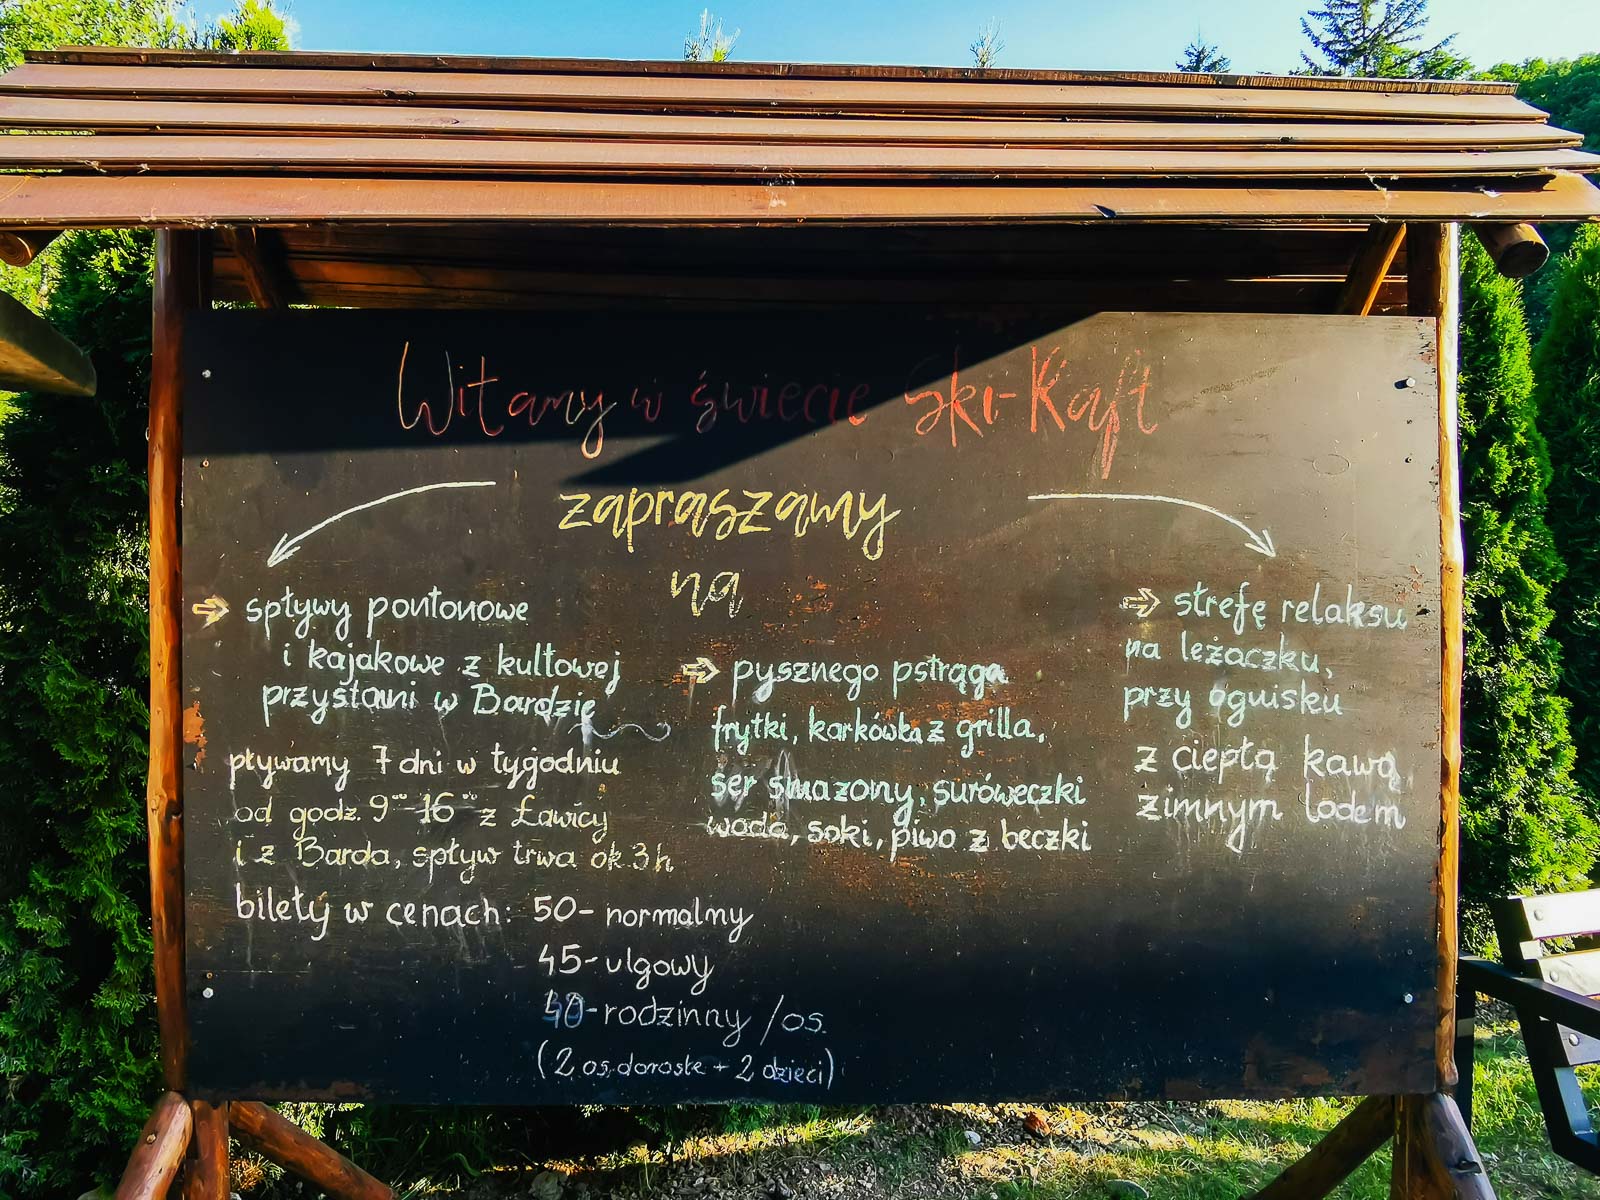 Witamy w świecie Ski-Raft
zapraszamy
na
⇨ spływy pontonowe
i kajakowe z kultowej
przystani w Bardzie
pływamy 7 dni w tygodniu
od godz. 9⁰⁰-16⁰⁰ z Ławicy
i z Barda, spływ trwa ok. 3h
bilety w cenach: 50- normalny
45- ulgowy
40- rodzinny /os.
(2 os. dorosłe + 2 dzieci)
⇨ pysznego pstrąga
frytki, karkówka z grilla,
ser smażony, suróweczki
woda, soki, piwo z beczki
⇨ strefę relaksu
na leżaczku,
przy ognisku
z ciepłą kawą
zimnym lodem